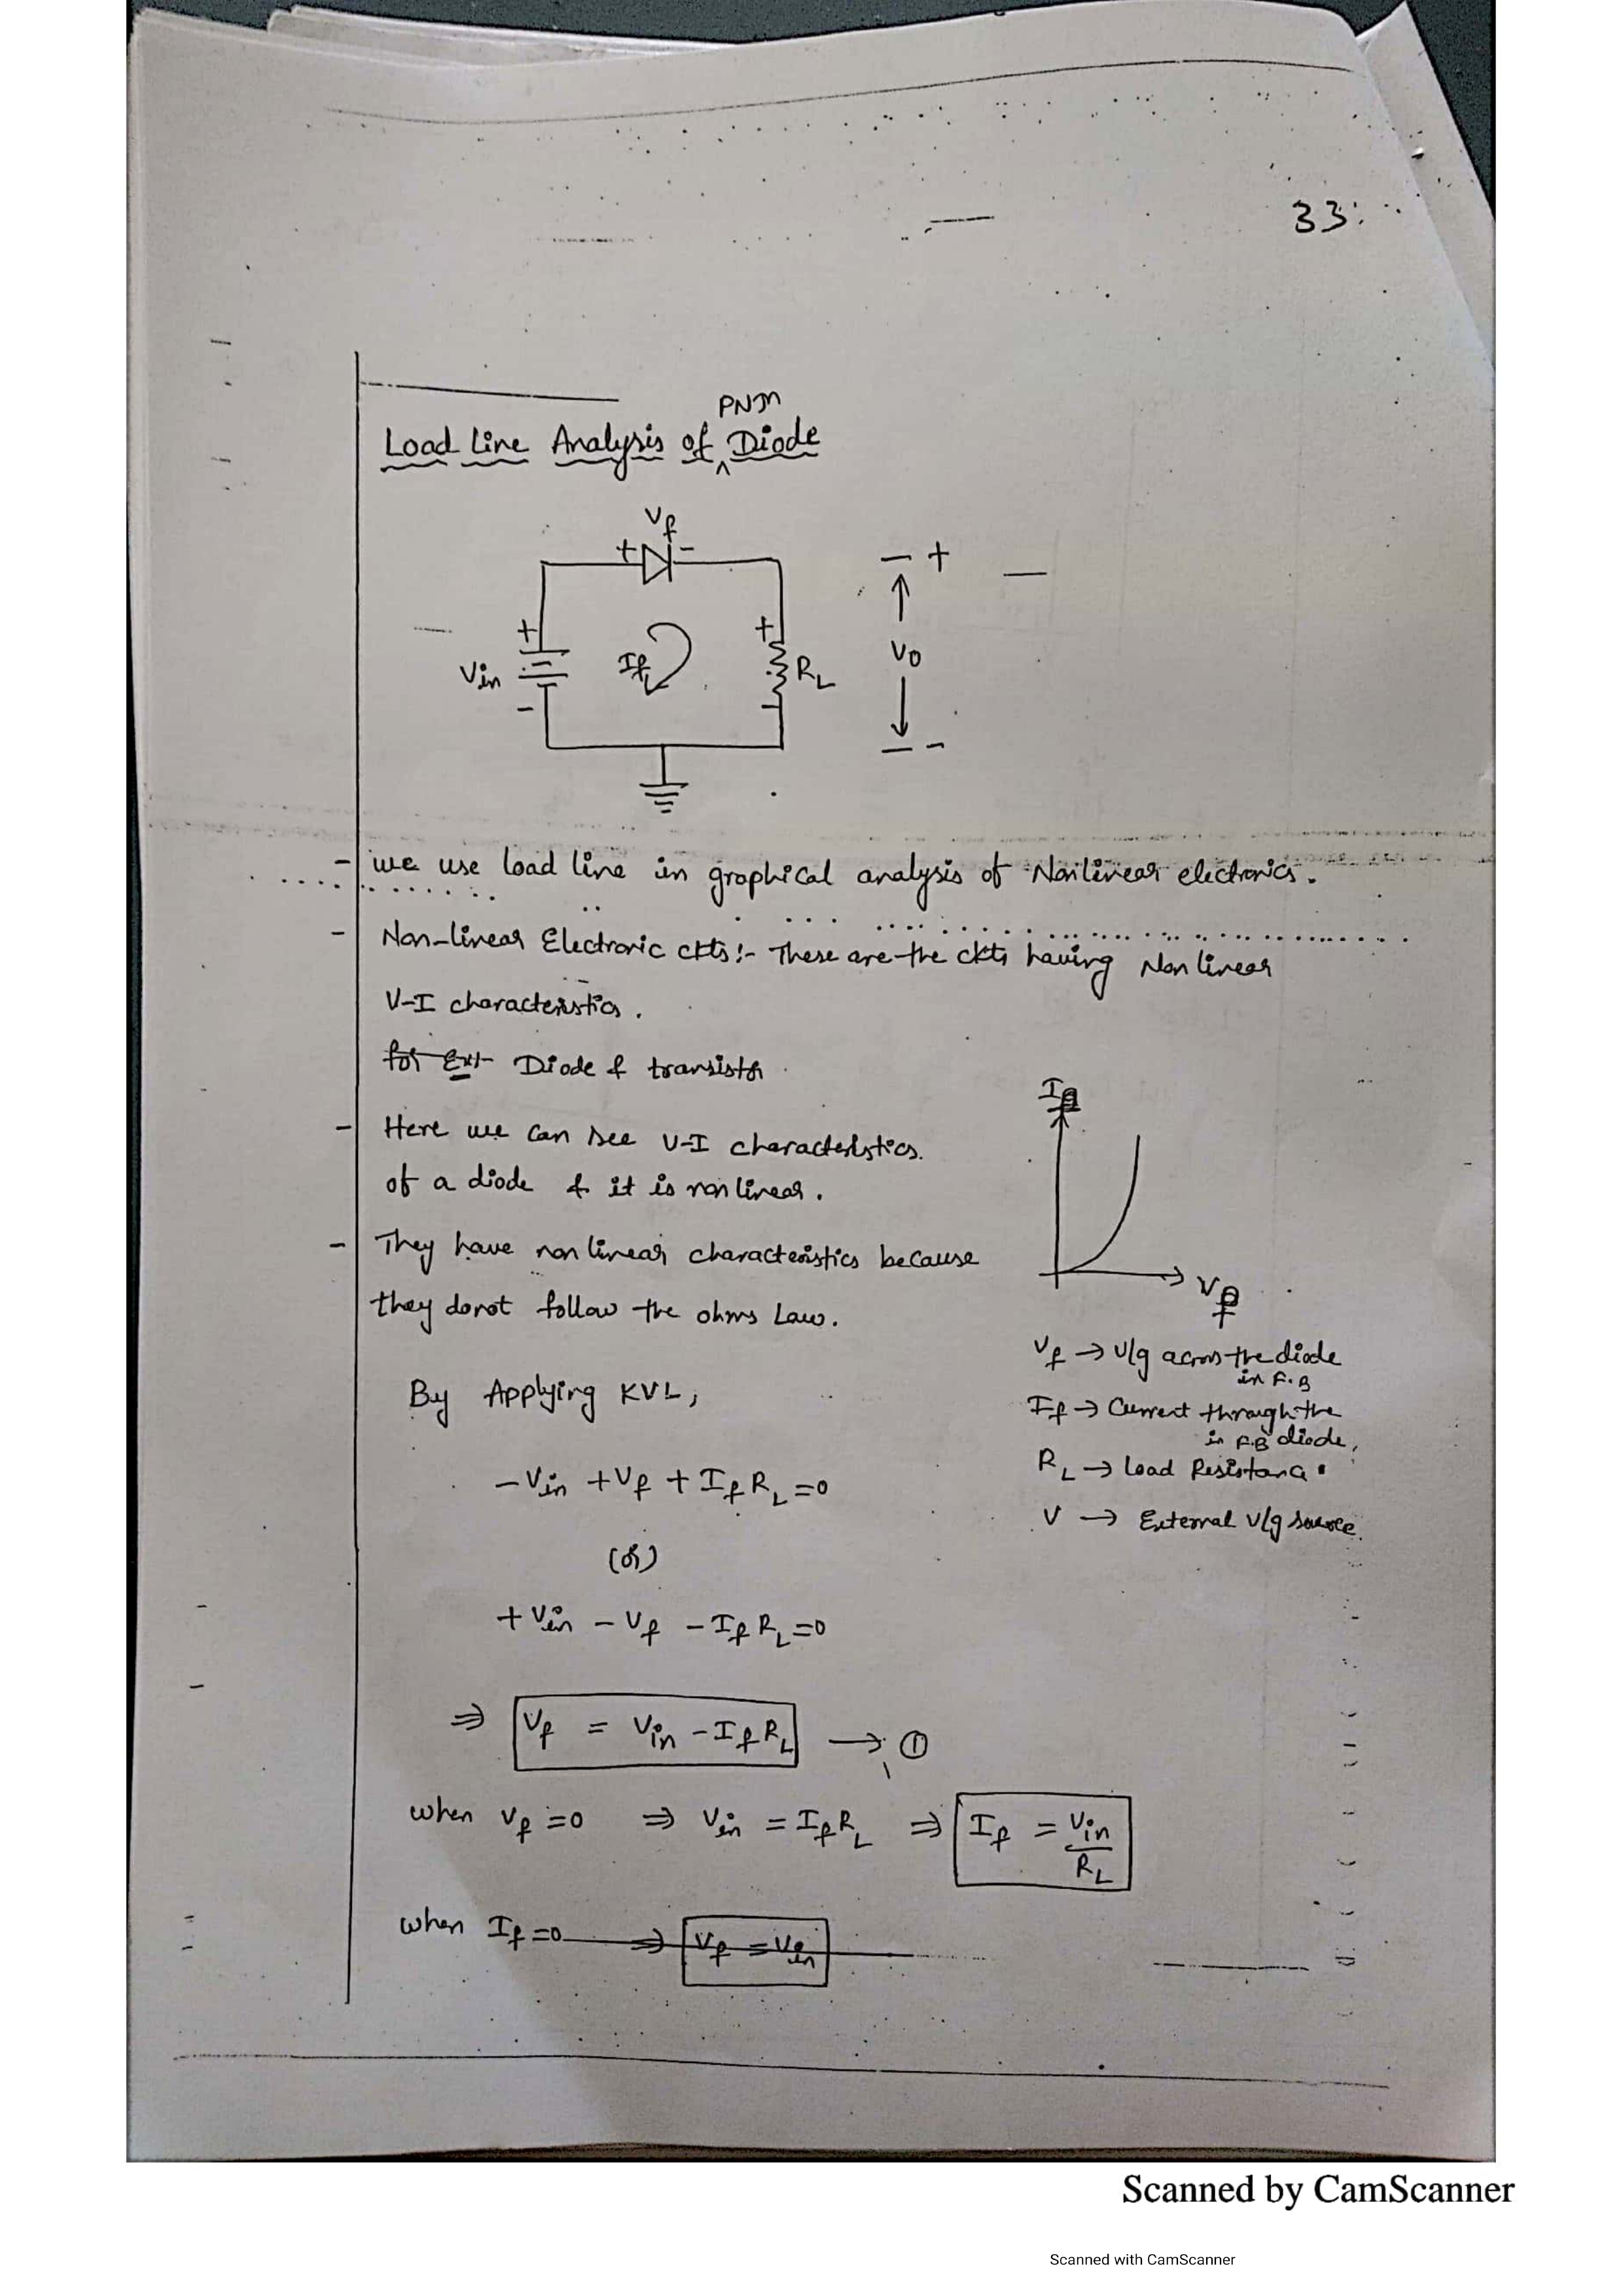 33
PNJn
Load Line Analysis of ^ Diode
Vf
+ -
- +
+ + Vo
Vin If RL
- - - -
- we use load line in graphical analysis of Nonlinear electronics.
- Non-linear Electronic ckts:- These are the ckts having Non linear
V-I characteristics.
for Ex:- Diode & transistor
- Here we can see V-I characteristics.
of a diode & it is non linear.
- They have non linear characteristics because
they donot follow the ohms Law.
If
Vf
Vf → V/g across the diode
in F.B
If → Current through the
in F.B diode,
RL → Load Resistance
V → External V/g source.
By Applying KVL,
-Vin + Vf + If RL = 0
(or)
+Vin - Vf - If RL = 0
⇒ Vf = Vin - If RL → ①
when Vf = 0 ⇒ Vin = If RL ⇒ If = Vin
RL
when If = 0 ⇒ Vf = Vin
Scanned by CamScanner
Scanned with CamScanner